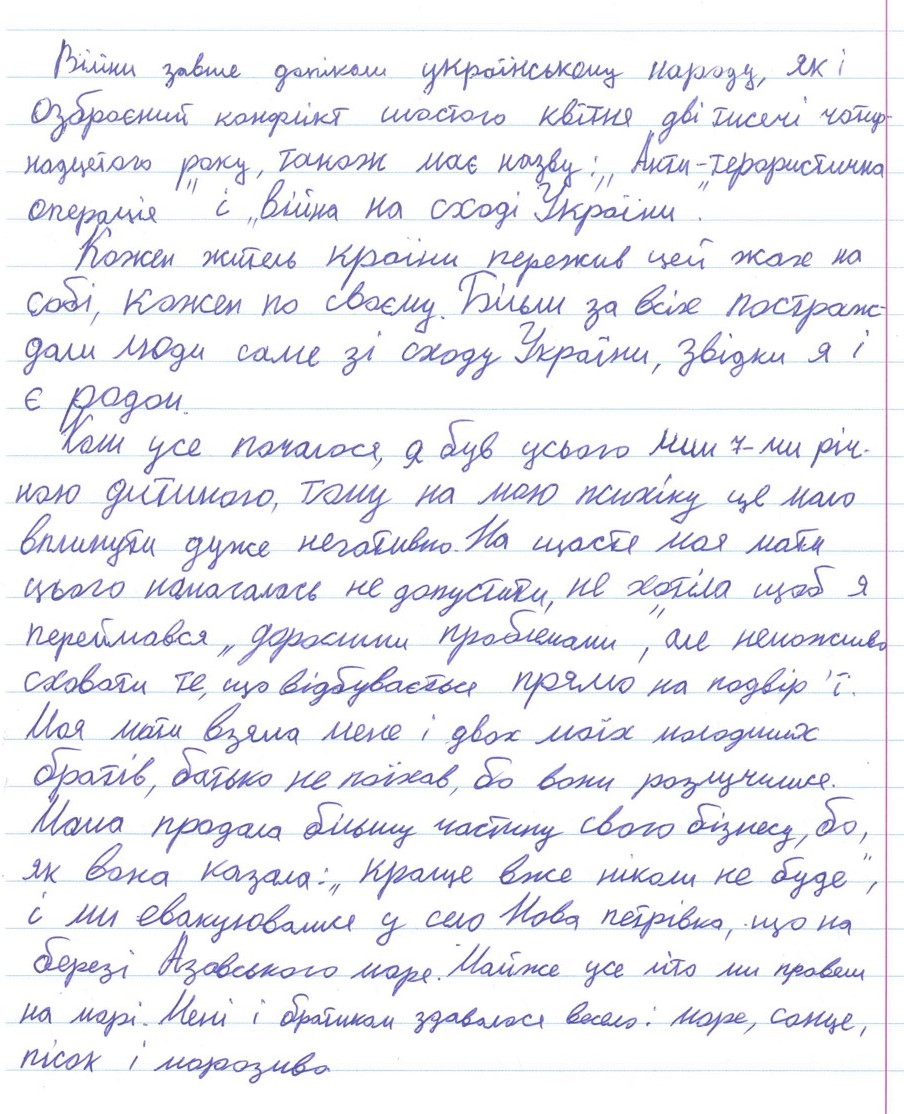 Війни завше допікали українському народу, як і
озброєний конфлікт шостого квітня дві тисячі чотир-
надцятого року, також має назву: „Анти-терористична
операція" і „війна на сході України".
Кожен житель країни пережив цей жах на
собі, кожен по своєму. Більш за всіх постраж-
дали люди саме зі сходу України, звідки я і
є родом.
Коли усе почалося, я був усього лиш 7-ми річ-
ною дитиною, тому на мою психіку це мало
вплинути дуже негативно. На щастя моя мати
цього намагалась не допустити, не хотіла щоб я
переймався „дорослими проблемами", але неможливо
сховати те, що відбувається прямо на подвір'ї.
Моя мати взяла мене і двох моїх молодших
братів, батько не поїхав, бо вони розлучилися.
Мама продала більшу частину свого бізнесу, бо,
як вона казала: „Краще вже ніколи не буде",
і ми евакуювалися у село Нова петрівка, що на
березі Азовського моря. Майже усе літо ми провели
на морі. Мені і братикам здавалося весело: море, сонце,
пісок і морозиво